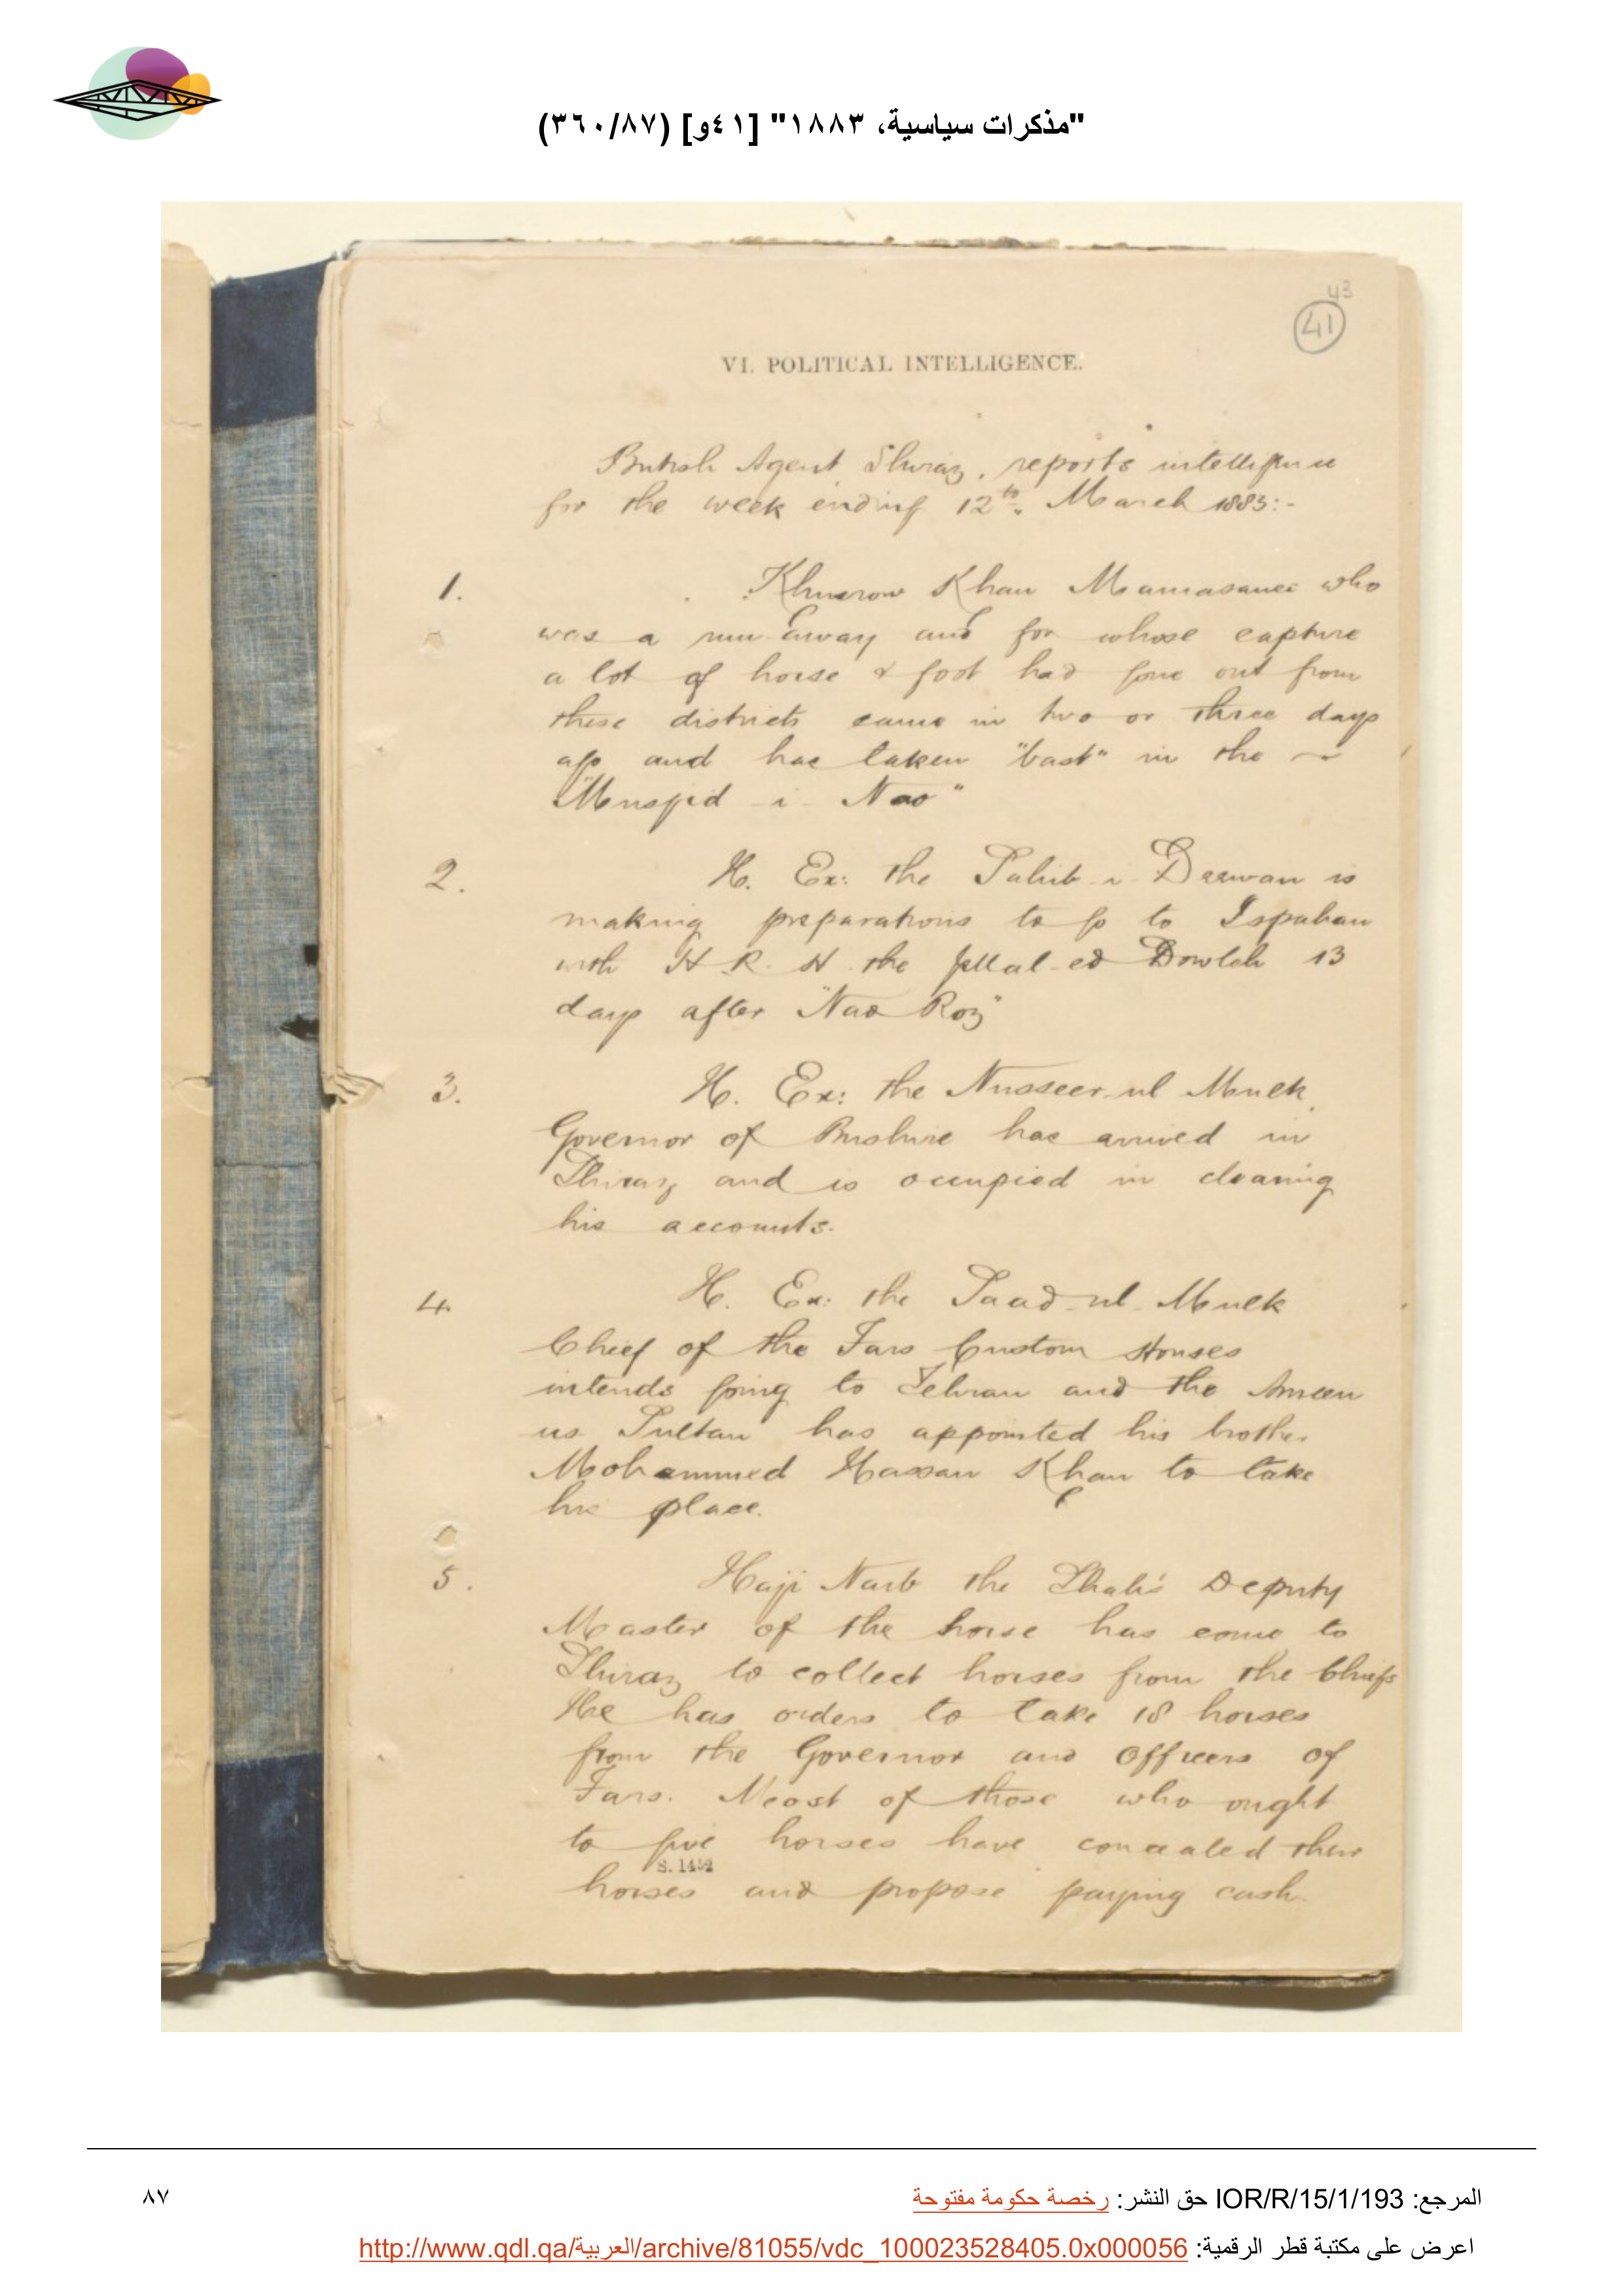 "مذكرات سياسية، ١٨٨٣" [٤١و] (٣٦٠/٨٧)
43
41
VI. POLITICAL INTELLIGENCE.
British Agent Shiraz, reports intelligence
for the week ending 12th. March 1883:-
1. Khusrow Khan Mamasanee who
was a run-away and for whose capture
a lot of horse & foot had gone out from
these districts came in two or three days
ago and has taken "bast" in the
"Musjid-i-Nao"
2. H. Ex: the Sahib-i-Deewan is
making preparations to go to Ispahan
with H.R.H. the Jellal-ed Dowleh 13
days after "Nao Roz"
3. H. Ex: the Nusseer-ul Mulk
Governor of Bushire has arrived in
Shiraz and is occupied in clearing
his accounts.
4. H. Ex: the Saad-ul-Mulk
Chief of the Fars Custom Houses
intends going to Tehran and the Ameen
us Sultan has appointed his brother
Mohammed Hassan Khan to take
his place.
5. Haji Naib the Shah's Deputy
Master of the horse has come to
Shiraz to collect horses from the Chiefs
He has orders to take 18 horses
from the Governor and Officers of
Fars. Most of those who ought
to give horses have concealed their
S. 1452
horses and propose paying cash.
المرجع: IOR/R/15/1/193 حق النشر: رخصة حكومة مفتوحة
٨٧
اعرض على مكتبة قطر الرقمية: http://www.qdl.qa/العربية/archive/81055/vdc_100023528405.0x000056